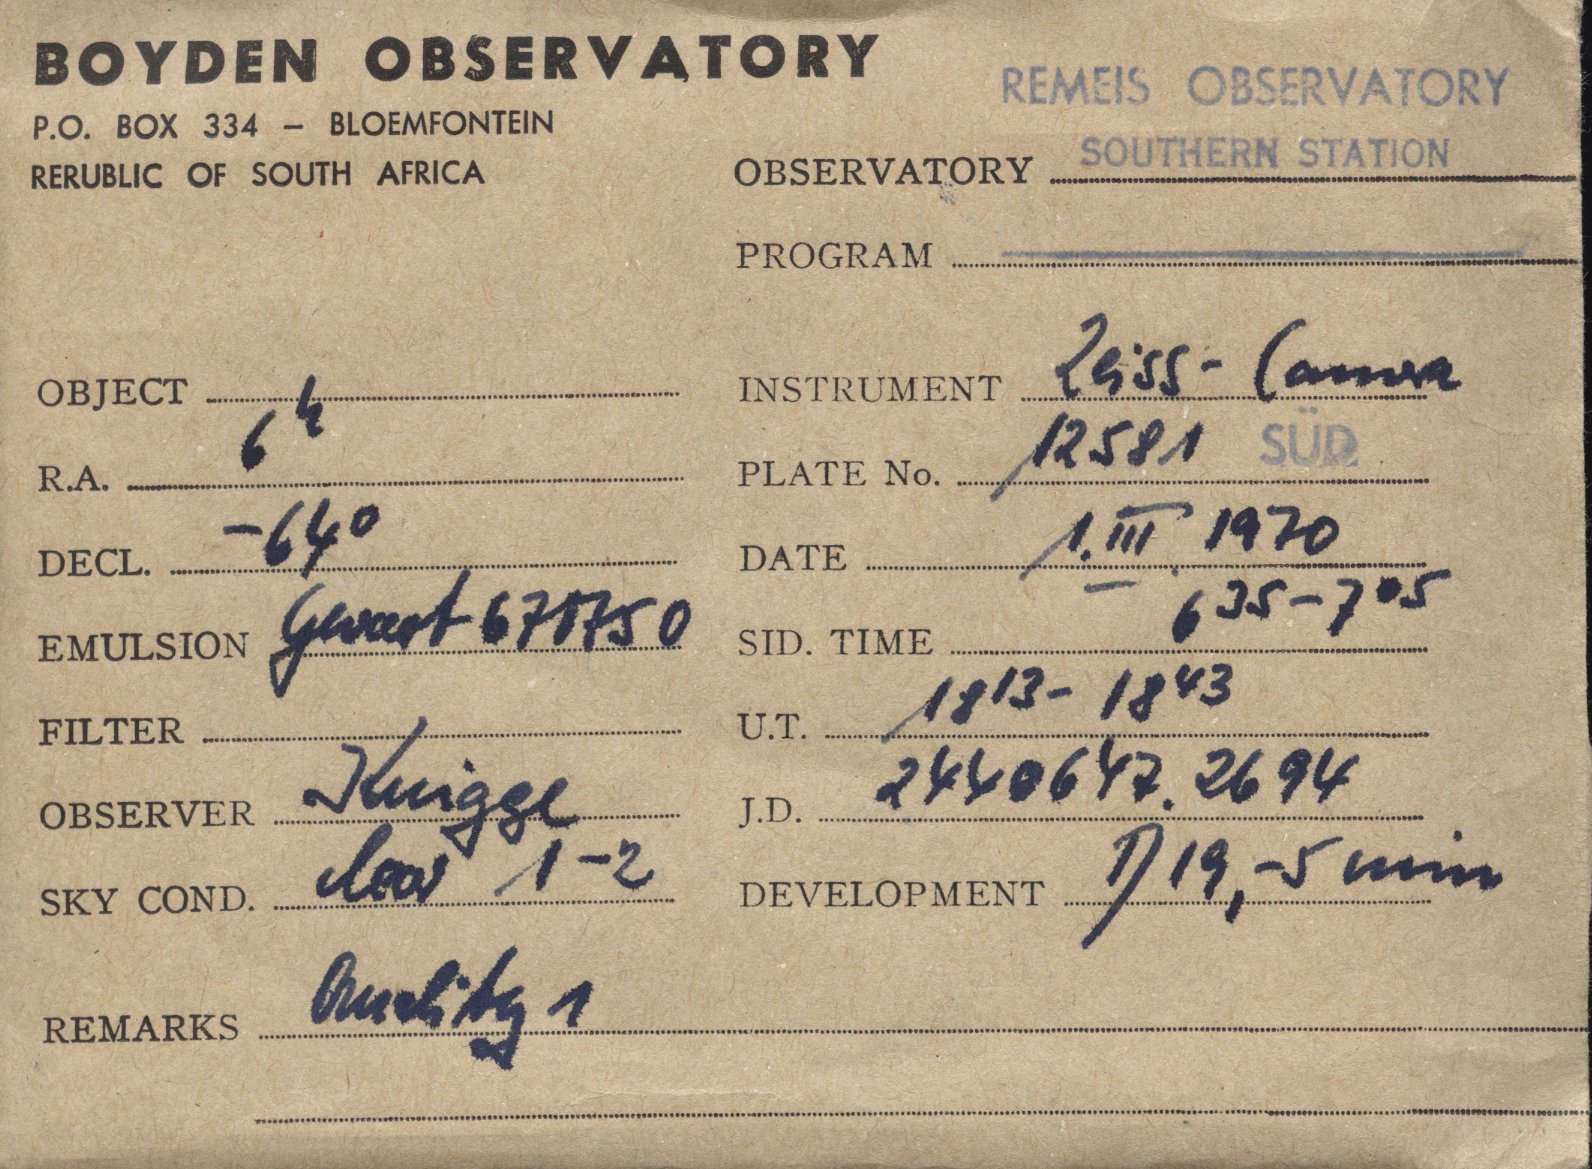 BOYDEN OBSERVATORY
P.O. BOX 334 – BLOEMFONTEIN
RERUBLIC OF SOUTH AFRICA
REMEIS OBSERVATORY
OBSERVATORY SOUTHERN STATION
PROGRAM
OBJECT
R.A. 6h
DECL. -64°
EMULSION Gevaert 67 750
FILTER
OBSERVER Knigge
SKY COND. clear 1-2
INSTRUMENT Zeiss-Camera
PLATE No. 12581 SÜD
DATE 1. III 1970
SID. TIME 6 35 - 7 05
U.T. 18 13 - 18 43
J.D. 2440647.2694
DEVELOPMENT D19, -5 min
REMARKS Quality 1